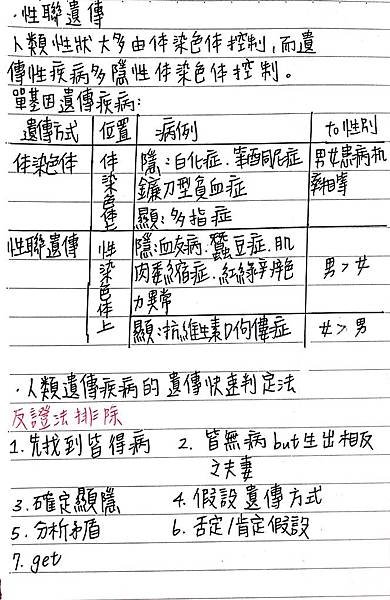 ·性聯遺傳
人類性狀大多由体染色体控制,而遺
傳性疾病多隱性体染色体控制。
單基因遺傳疾病:
遺傳方式 位置 病例 to性別
体染色体 体染色体上 隱:白化症、苯酮尿症 男女患病机率相等
鐮刀型貧血症
顯:多指症
性聯遺傳 性染色体上 隱:血友病、蠶豆症、肌 男>女
肉萎縮症、紅綠辨色
力異常
顯:抗維生素D佝僂症 女>男
·人類遺傳疾病的遺傳快速判定法
反證法排除
1.先找到皆得病 2. 皆無病but生出相反
之夫妻
3.確定顯隱 4. 假設遺傳方式
5.分析矛盾 6. 否定/肯定假設
7. get